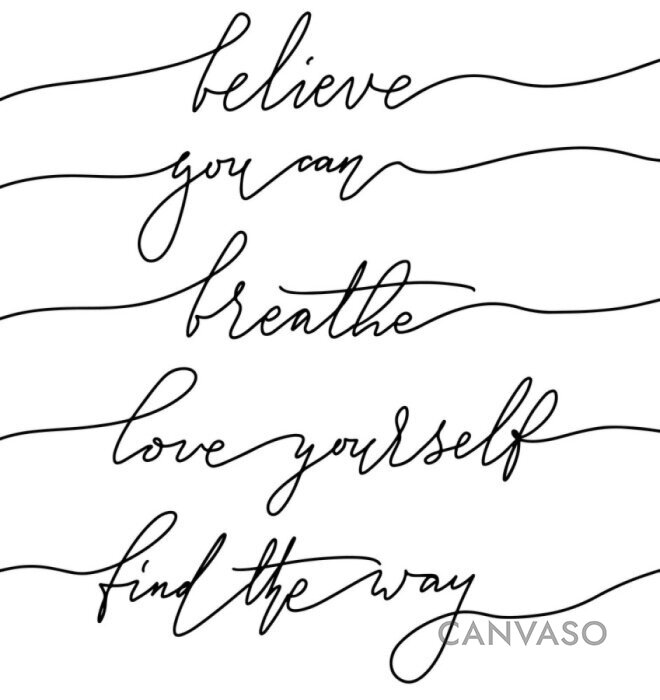 believe
you can
breathe
love yourself
find the way
CANVASO